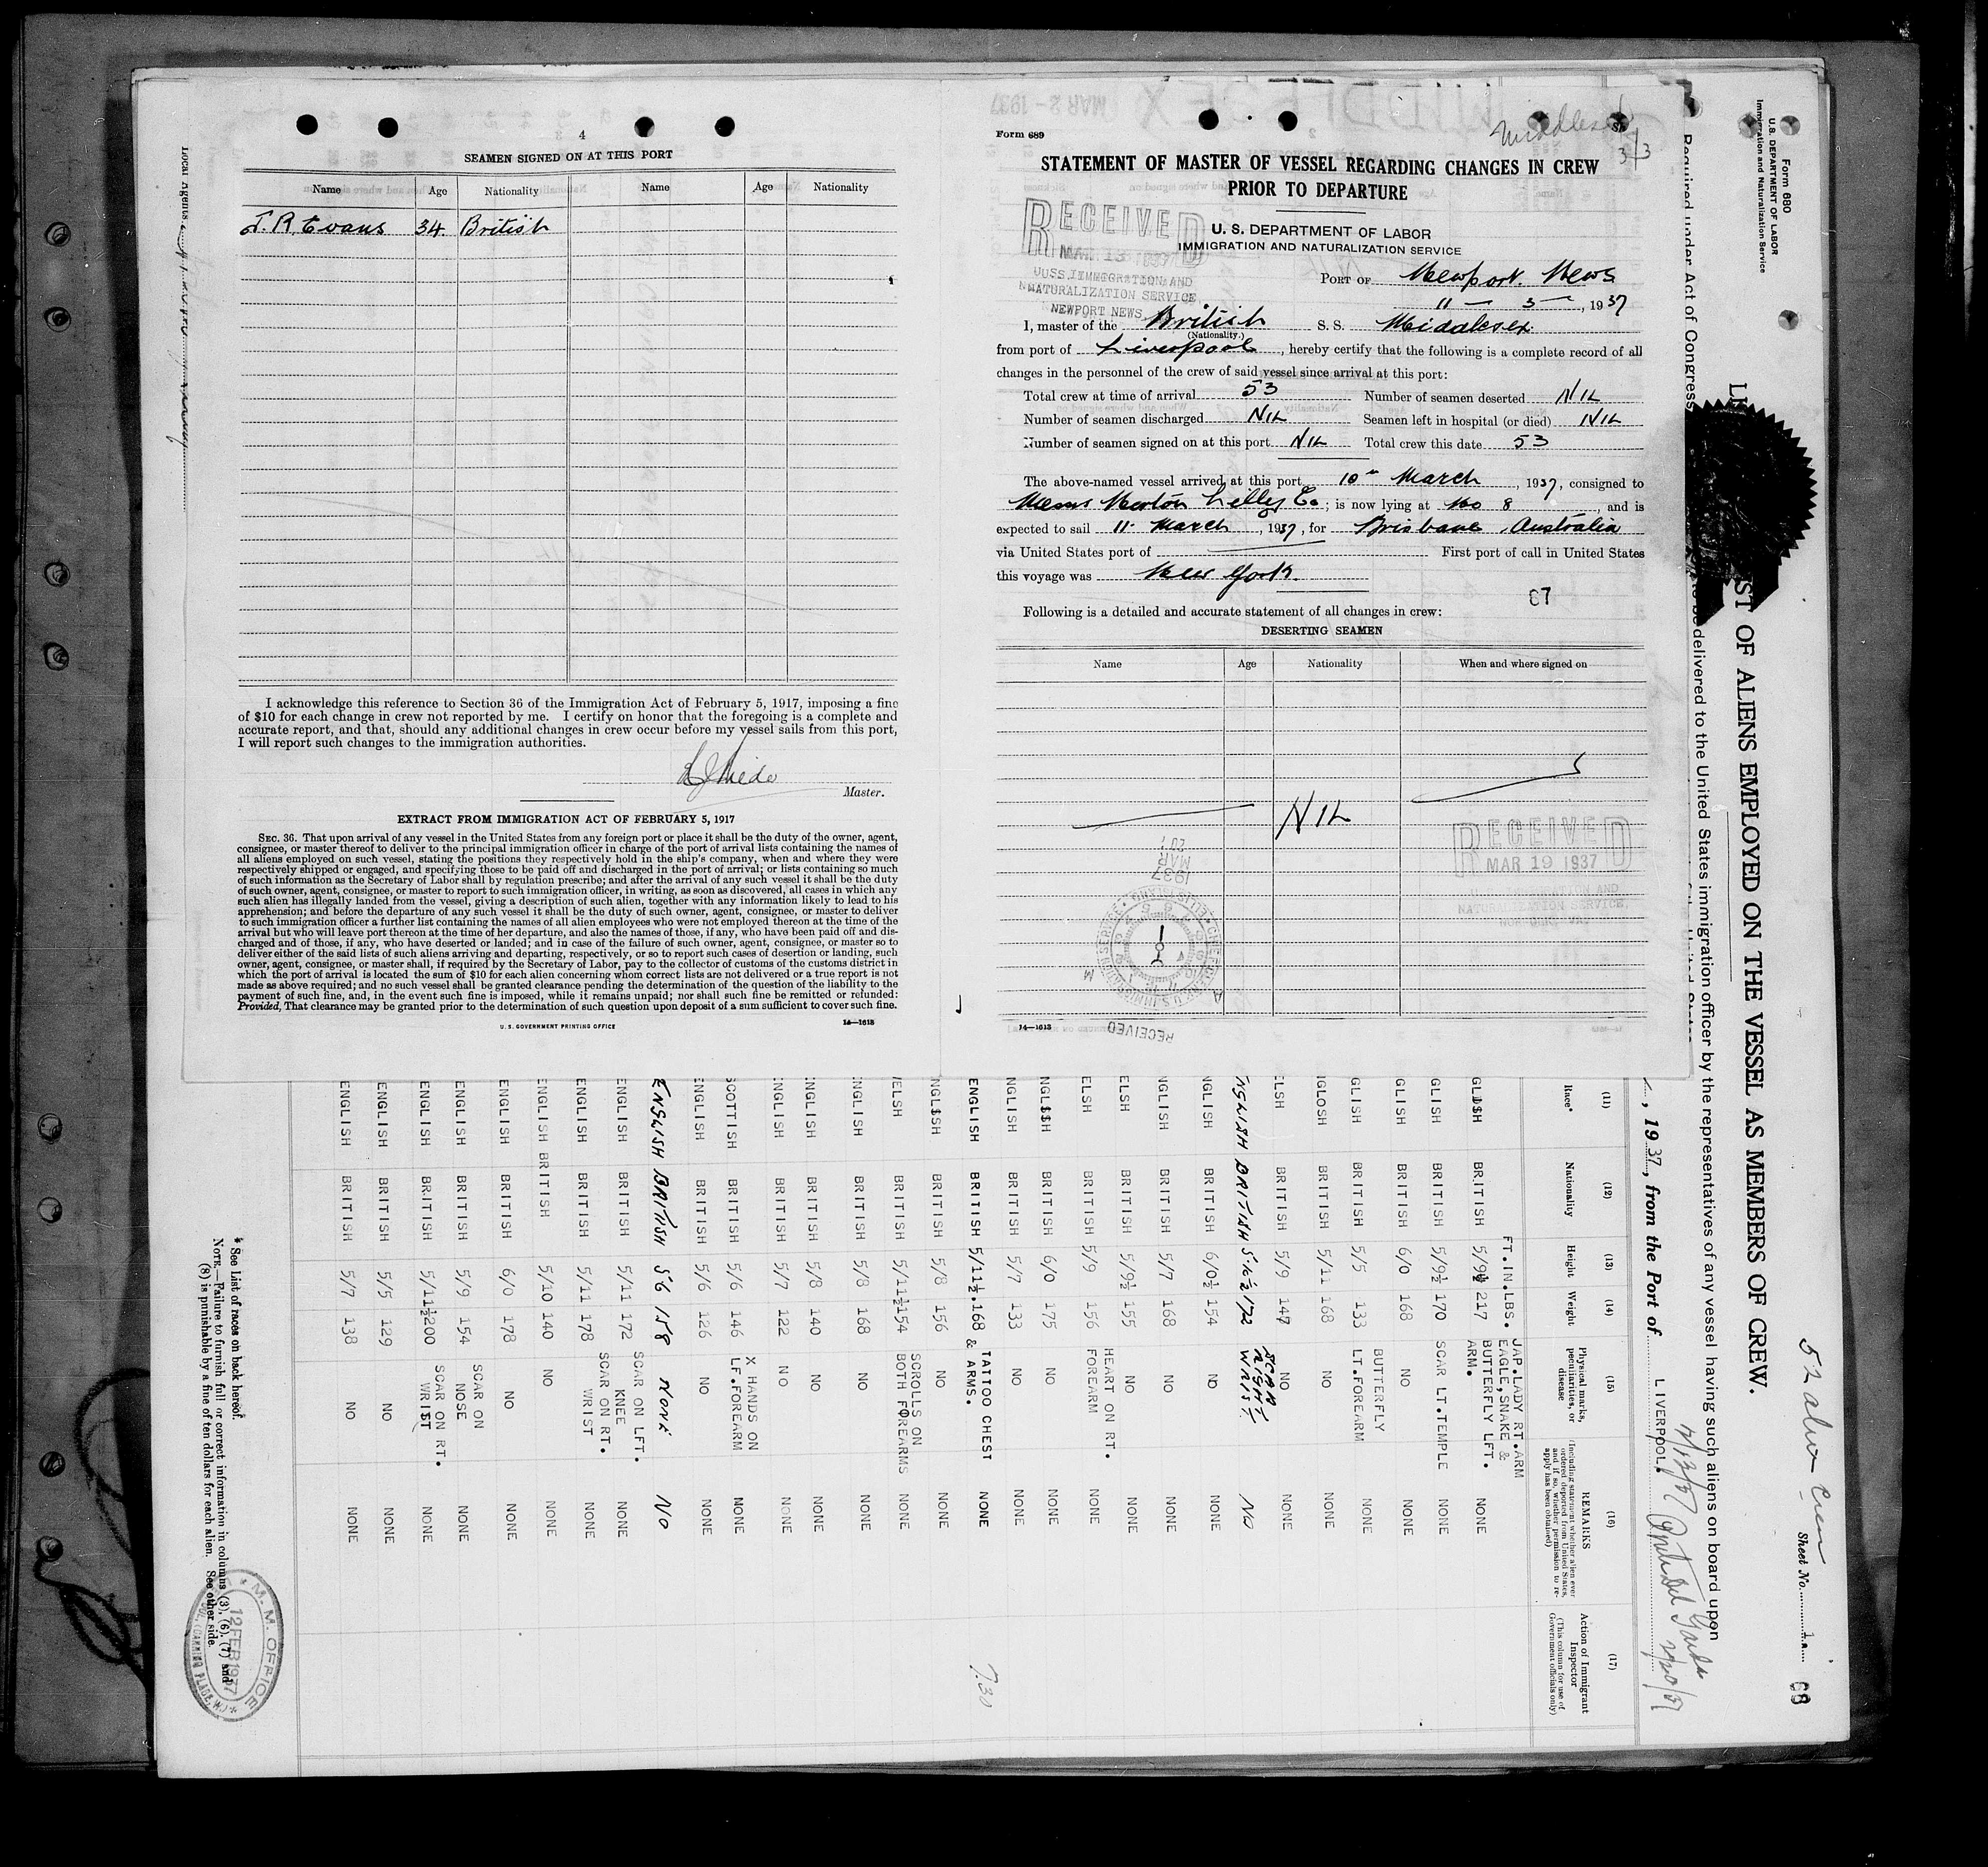 4
SEAMEN SIGNED ON AT THIS PORT
Name Age Nationality Name Age Nationality
J.R. Evans 34 British
I acknowledge this reference to Section 36 of the Immigration Act of February 5, 1917, imposing a fine
of $10 for each change in crew not reported by me. I certify on honor that the foregoing is a complete and
accurate report, and that, should any additional changes in crew occur before my vessel sails from this port,
I will report such changes to the immigration authorities.
Master.
EXTRACT FROM IMMIGRATION ACT OF FEBRUARY 5, 1917
SEC. 36. That upon arrival of any vessel in the United States from any foreign port or place it shall be the duty of the owner, agent,
consignee, or master thereof to deliver to the principal immigration officer in charge of the port of arrival lists containing the names of
all aliens employed on such vessel, stating the positions they respectively hold in the ship's company, when and where they were
respectively shipped or engaged, and specifying those to be paid off and discharged in the port of arrival; or lists containing so much
of such information as the Secretary of Labor shall by regulation prescribe; and after the arrival of any such vessel it shall be the duty
of such owner, agent, consignee, or master to report to such immigration officer, in writing, as soon as discovered, all cases in which any
such alien has illegally landed from the vessel, giving a description of such alien, together with any information likely to lead to his
apprehension; and before the departure of any such vessel it shall be the duty of such owner, agent, consignee, or master to deliver
to such immigration officer a further list containing the names of all alien employees who were not employed thereon at the time of the
arrival but who will leave port thereon at the time of her departure, and also the names of those, if any, who have been paid off and dis-
charged and of those, if any, who have deserted or landed; and in case of the failure of such owner, agent, consignee, or master so to
deliver either of the said lists of such aliens arriving and departing, respectively, or so to report such cases of desertion or landing, such
owner, agent, consignee, or master shall, if required by the Secretary of Labor, pay to the collector of customs of the customs district in
which the port of arrival is located the sum of $10 for each alien concerning whom correct lists are not delivered or a true report is not
made as above required; and no such vessel shall be granted clearance pending the determination of the question of the liability to the
payment of such fine, and, in the event such fine is imposed, while it remains unpaid; nor shall such fine be remitted or refunded:
Provided, That clearance may be granted prior to the determination of such question upon deposit of a sum sufficient to cover such fine.
U. S. GOVERNMENT PRINTING OFFICE 14—1613
Local Agents
Form 689
Middlesex
3/3
STATEMENT OF MASTER OF VESSEL REGARDING CHANGES IN CREW
PRIOR TO DEPARTURE
U. S. DEPARTMENT OF LABOR
IMMIGRATION AND NATURALIZATION SERVICE
RECEIVED
MAR 13 1937
U.S. IMMIGRATION AND
NATURALIZATION SERVICE,
NEWPORT NEWS,
PORT OF Newport News
11 — 3 —, 1937
I, master of the British S. S. Middlesex
(Nationality.)
from port of Liverpool, hereby certify that the following is a complete record of all
changes in the personnel of the crew of said vessel since arrival at this port:
Total crew at time of arrival 53 Number of seamen deserted NIL
Number of seamen discharged NIL Seamen left in hospital (or died) NIL
Number of seamen signed on at this port NIL Total crew this date 53
The above-named vessel arrived at this port 10th March, 1937, consigned to
Messrs Norton Lilley Co; is now lying at No 8, and is
expected to sail 11 March, 1937, for Brisbane, Australia
via United States port of First port of call in United States
this voyage was New York.
67
Following is a detailed and accurate statement of all changes in crew:
DESERTING SEAMEN
Name Age Nationality When and where signed on
NIL
RECEIVED
MAR 19 1937
NATURALIZATION SERVICE,
MAR
1937
RECEIVED
14—1613
Form 680
U. S. DEPARTMENT OF LABOR
Immigration and Naturalization Service
52 alien crew
Sheet No. 1.
68
LIST OF ALIENS EMPLOYED ON THE VESSEL AS MEMBERS OF CREW.
Required under Act of Congress
be delivered to the United States immigration officer by the representatives of any vessel having such aliens on board upon
, 1937, from the Port of LIVERPOOL.
(11) (12) (13) (14) (15) (16) (17)
Race* Nationality Height Weight Physical marks, peculiarities, or disease
REMARKS
(Including statement whether alien ever ordered deported from United States, and if so, whether permission to reapply has been obtained)
Action of Immigrant Inspector
(This column for use of Government officials only)
FT.IN.LBS.
GLISH BRITISH 5/9½ 217 JAP.LADY RT.ARM EAGLE,SNAKE & BUTTERFLY LFT. ARM. NONE
GLISH BRITISH 5/9½ 170 SCAR LT.TEMPLE NONE
GLISH BRITISH 6/0 168 NO NONE
GLISH BRITISH 5/5 133 BUTTERFLY LT.FOREARM NONE
BRITISH 5/11 168 NO NONE
ELSH BRITISH 5/9 147 NO NONE
ENGLISH BRITISH 172 SCAR RIGHT WRIST. NO
NGLISH BRITISH 6/0½ 154 NO NONE
NGLISH BRITISH 5/7 168 NO NONE
ELSH BRITISH 5/9½ 155 NO NONE
ELSH BRITISH 5/9 156 HEART ON RT. FOREARM NONE
NGLISH BRITISH 6/0 175 NO NONE
NGLISH BRITISH 5/7 133 NO NONE
ENGLISH BRITISH 5/11½.168 TATTOO CHEST & ARMS. NONE 7.30
NGLISH BRITISH 5/8 156 NO NONE
ELSH BRITISH 5/11½154 SCROLLS ON BOTH FOREARMS NONE
NGLISH BRITISH 5/8 168 NO NONE
NGLISH BRITISH 5/8 140 NO NONE
ENGLISH BRITISH 5/7 122 NO NONE
SCOTTISH BRITISH 5/6 146 X HANDS ON LF.FOREARM NONE
ENGLISH BRITISH 5/6 126 NO NONE
ENGLISH BRITISH 5 6 158 NONE NO
ENGLISH BRITISH 5/11 172 SCAR ON LFT. KNEE NONE
ENGLISH BRITISH 5/11 178 SCAR ON RT. WRIST NONE
ENGLISH BRITISH 5/10 140 NO NONE
ENGLISH BRITISH 6/0 178 NO NONE
ENGLISH BRITISH 5/9 154 SCAR ON NOSE NONE
ENGLISH BRITISH 5/11½200 SCAR ON RT. WRIST NONE
ENGLISH BRITISH 5/5 129 NO NONE
ENGLISH BRITISH 5/7 138 NO NONE
* See List of races on back hereof.
NOTE.—Failure to furnish full or correct information in columns (3), (6), (7) and
(8) is punishable by a fine of ten dollars for each alien. See other side.
M. M. OFFICE
12 FEB 1937
CANNING PLACE